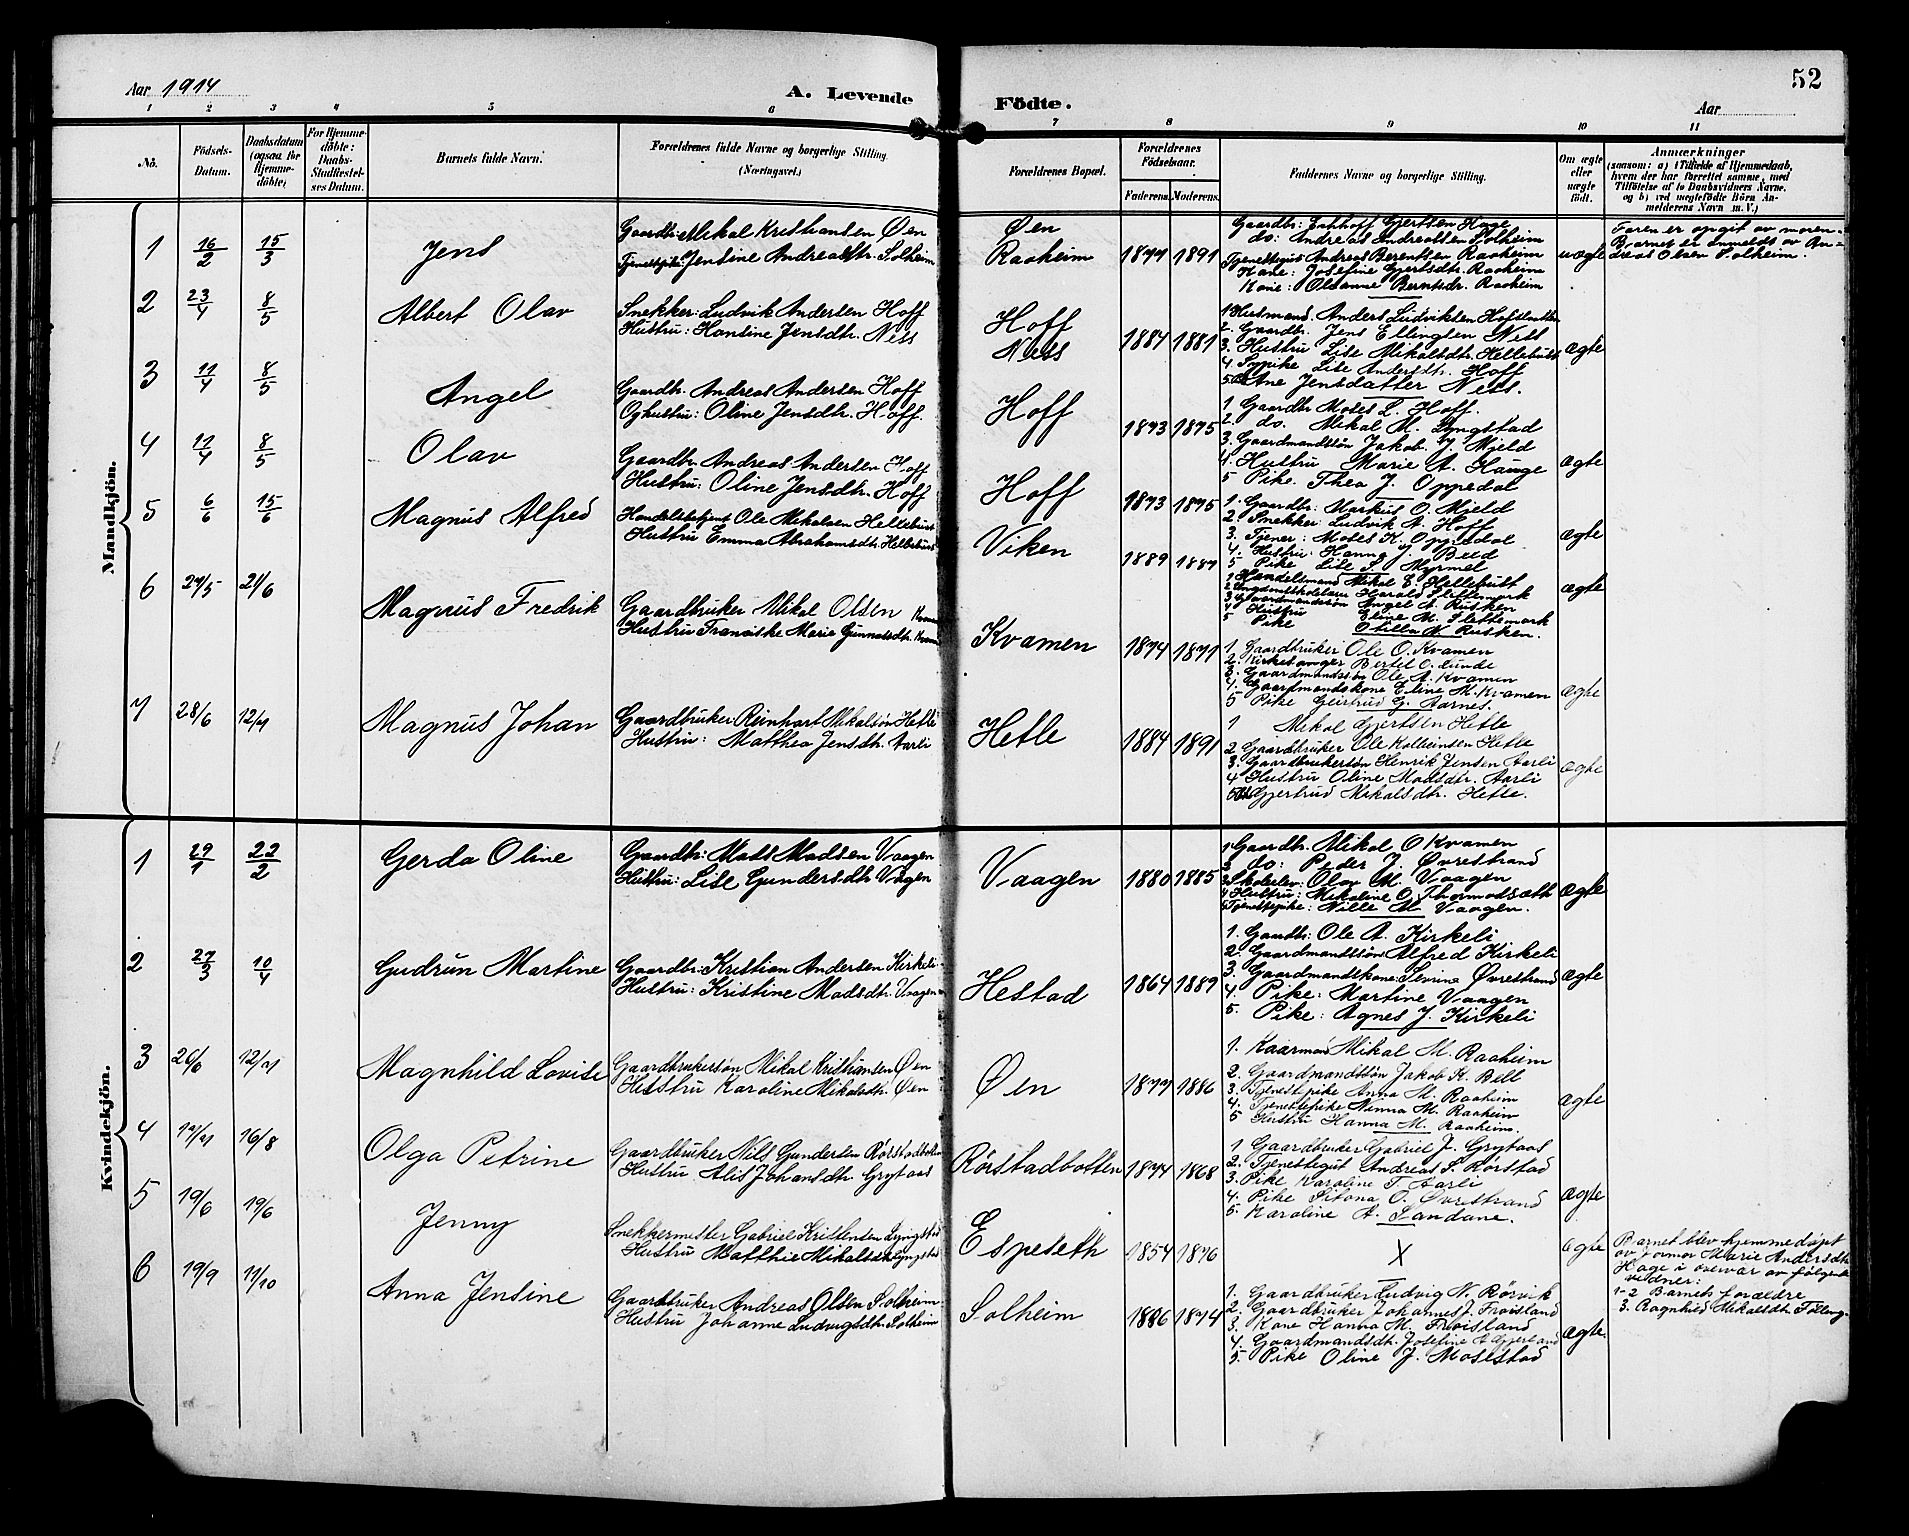 52
Aar 1914
A. Levende
Födte.
Aar
1 2 3 4 5 6 7 8 9 10 11
No.
Födsels-Datum.
Daabsdatum (ogsaa for Hjemme-döbte)
For Hjemme-döbte: Daabs-Stadfæstel-ses Datum.
Barnets fulde Navn.
Forældrenes fulde Navne og borgerlige Stilling. (Næringsvei.)
Forældrenes Bopæl.
Forældrenes Födselsaar.
Faderens. Moderens.
Faddernes Navne og borgerlige Stilling.
Om ægte eller uægte födt.
Anmærkninger
(saasom: a) i Tilfælde af Hjemmedaab,
hvem der har forrettet samme, med
Tilföielse af to Daabsvidners Navne.
og b) ved uægtefödte Börn An-
melderens Navn m. V.)
Mandkjön.
1 16/2 15/3 Jens
Gaardbr: Mikal Kristiansen Øen
Tjenestepike Jensine Andreasdtr. Solheim
Øen
Raaheim
1877 1891
Gaardbr: Gjertsen Hage
do: Andreas Andreassen Solheim
Tjenestegut Andreas Berentsen Raaheim
Kone: Josefine Gjertsdtr. Raaheim
Kone: Olianne Berntsdr. Raaheim
uægte
Faren er opgit av moren.
Barnet er anmeldt av An-
dreas Olsen Solheim.
2 23/4 8/5 Albert Olav
Snekker: Ludvik Andersen Hoff
Hustru: Hansine Jensdtr. Ness
Hoff
Ness
1884 1881
1 Husmand Anders Ludviksen
2. Gaardbr. Jens Ellingsen Ness
3. Hustru Lise Mikalsdtr. Hellebust
4. Sypike Lise Andersdtr. Hoff
5. Ane Jensdatter Ness.
ægte
3 11/4 8/5 Angel
Gaardbr. Andreas Andersen Hoff
Og hustru: Oline Jensdtr. Hoff.
Hoff
1873 1875
1. Gaardbr Moses L. Hoff.
2. do. Mikal M. Lyngstad
3. Gaardmandssøn Jakob J. Mjeld
4. Hustru Marie A. Hauge
5 Pike Thea J. Oppedal
ægte
4 11/4 8/5 Olav
Gaardbr. Andreas Andersen Hoff
Hustru: Oline Jensdtr. Hoff
Hoff
1873 1875
1. Gaardbr: Markus O. Mjeld
2. Snekker Ludvik A. Hoff
3. Tjener: Moses K. Oppedal
4. Hustru: Hanna J. Bell
5 Pike Lise S. Myrmel
ægte
5 6/6 15/6 Magnus Alfred
Handelsbetjent Ole Mikalsen Hellebust
Hustru Emma Abrahamsdtr. Hellebust
Viken
1889 1887
1 Handelsmand Mikal E. Hellebust
2 Harald Slettemark
3 Gaardmandssøn Angel A. Rusken
4 Hustru Eline M. Slettemark
5 Pike Otilla N. Rusken.
ægte
6 27/5 21/6 Magnus Fredrik
Gaardbruker Mikal Olsen Kvamen
Hustru Franciske Marie Gunnarsdtr. Kvamen
Kvamen
1874 1871
1. Gaardbruker Ole O. Kvamen
2. Kirkesanger Bertel O. Lunde
3. Gaardmandssøn Ole A. Kvamen
4. Gaardmandskone Eline M. Kvamen
5 Pike Geirtrud G. Aarnes.
ægte
7 28/6 12/7 Magnus Johan
Gaardbruker Reinhart Mikalsøn Hetle
Hustru: Matthea Jensdtr. Aarli
Hetle
1884 1891
1 Mikal Gjertsen Hetle
2 Gaardbruker Ole Kolbeinsen Hetle
3. Gaardbrukersøn Henrik Jensen Aarli
4 Hustru Oline Madsdtr. Aarli
5 Gjertrud Mikalsdtr. Hetle.
ægte
Kvindekjön.
1 29/1 22/2 Gerda Oline
Gaardbr: Mads Madsen Vaagen
Hustru: Lise Gundersdtr Vaagen
Vaagen
1880 1885
1 Gaardbr. Mikal O Kvamen
2 do: Peder J. Øvrestrand
3 Skoleelev: Olav M. Vaagen
4 Hustru: Mikaline O. Thormodsæth
5 Tjenestepike: Nille M Vaagen.
ægte
2 27/3 10/4 Gudrun Martine
Gaardbr: Kristian Andersen Kirkeli
Hustru: Kristine Madsdtr. Vaagen
Hestad
1864 1889
1. Gaardbr: Ole A. Kirkeli
2. Gaardmandssøn Alfred Kirkeli
3. Gaardmandskone: Sevrine Øvrestrand
4. Pike: Martine Vaagen
5. Pike: Agnes J. Kirkeli
ægte
3 26/6 12/7 Magnhild Lovise
Gaardbrukersøn Mikal Kristiansen Øen
Hustru Karoline Mikalsdtr. Øen
Øen
1877 1886
1. Kaarmand Mikal M. Raaheim
2. Gaardmandssøn Jakob K. Bell
3. Tjenestepike Anna M. Raaheim
4. Tjenestepike Ninna M. Raaheim
5 Hustru Hanna M. Raaheim.
ægte
4 17/7 16/8 Olga Petrine
Gaardbruker Nils Gundersen Rørstadbotten
Hustru Alis Johansdtr. Grytaas
Rørstadbotten
1874 1868
1 Gaardbruker Gabriel J. Grytaas
2. Tjenestegut Andreas S. Rørstad
3. Pike Karoline T. Aarli
4. Pike O. Øvrestrand
5. Karoline A. Sandane.
ægte
5 19/6 19/6 Jenny
Snekkermester Gabriel Kristensen Lyngstad
Hustru Matthie Mikalsdtr Lyngstad
Espeseth
1854 1876
X
ægte
Barnet blev hjemmedøpt
av Jormor Marie Andersdtr.
Hage i overvær av følgende
vidner:
1-2 Barnets forældre
3. Ragnhild Mikalsdtr.
6 19/9 11/10 Anna Jensine
Gaardbruker Andreas Olsen Solheim
Hustru Johanne Ludvigsdtr. Solheim
Solheim
1886 1874
1. Gaardbruker Ludvig N. Rørvik
2. Gaardbruker Johannes J. Frøisland
3. Kone Hanna M. Frøisland
4. Gaardmandsdtr. Josefine
5. Pike Oline J. Moststad
ægte